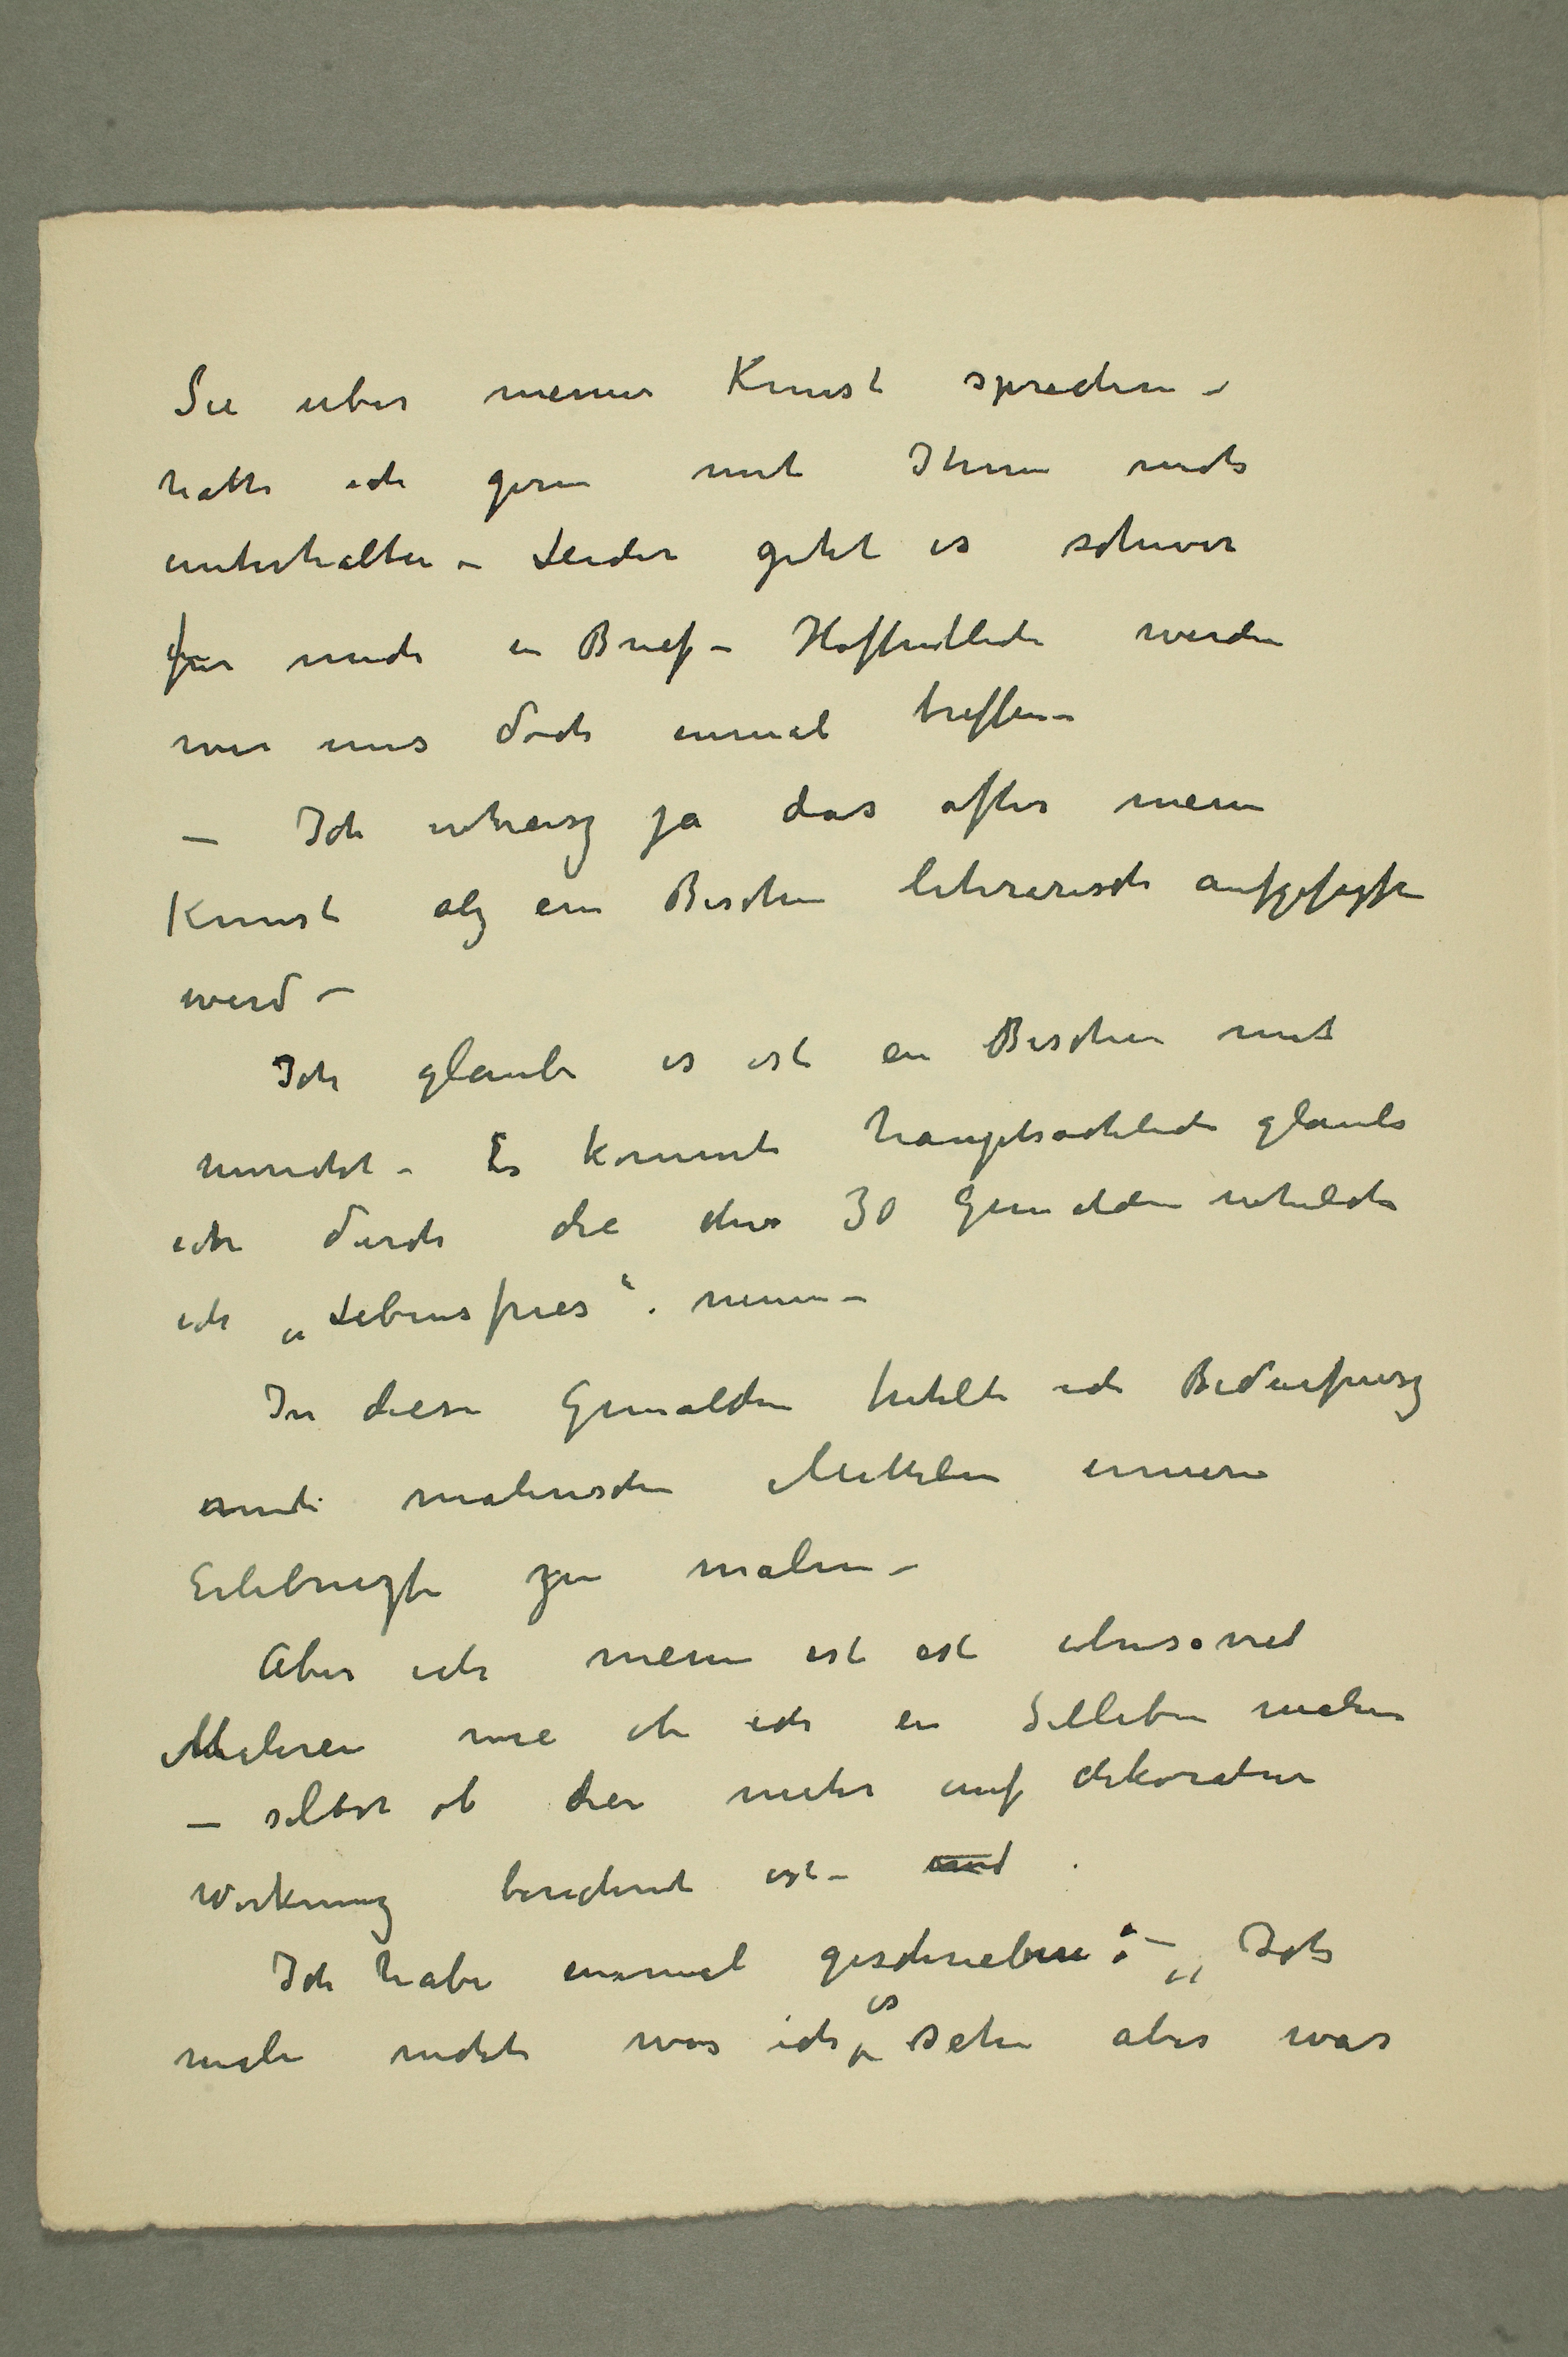 Sie uber meiner Kunst sprechen –
hatte ich gern mit Ihnen mich
unterhalten – Leider geht es schwer
fur mich in Brief – Hoffentlich werden
wir uns doch einmal treffen –
– Ich weisz ja das ofter meine
Kunst als ein Bischen literarisch
wird –
Ich glaube es ist ein Bischen mit
unrecht – Es kommt hauptsachlich glaube
ich durch die 30 Gemälden welche
ich „Lebensfries“. nenne –
In diese Gemalden fuhlte ich Bedurfnisz
mit malerischen Mitteln innere
Erlebnisze zu malen –
Aber ich meine ist est ebensoviel
Malerei wie ob ich ein Silleben male
– selbst ob die mehr auf dekorative
Wirkung berechnet ist – und
Ich habe einmal geschrieben: – „Ich
male nicht was ich es sehe aber was